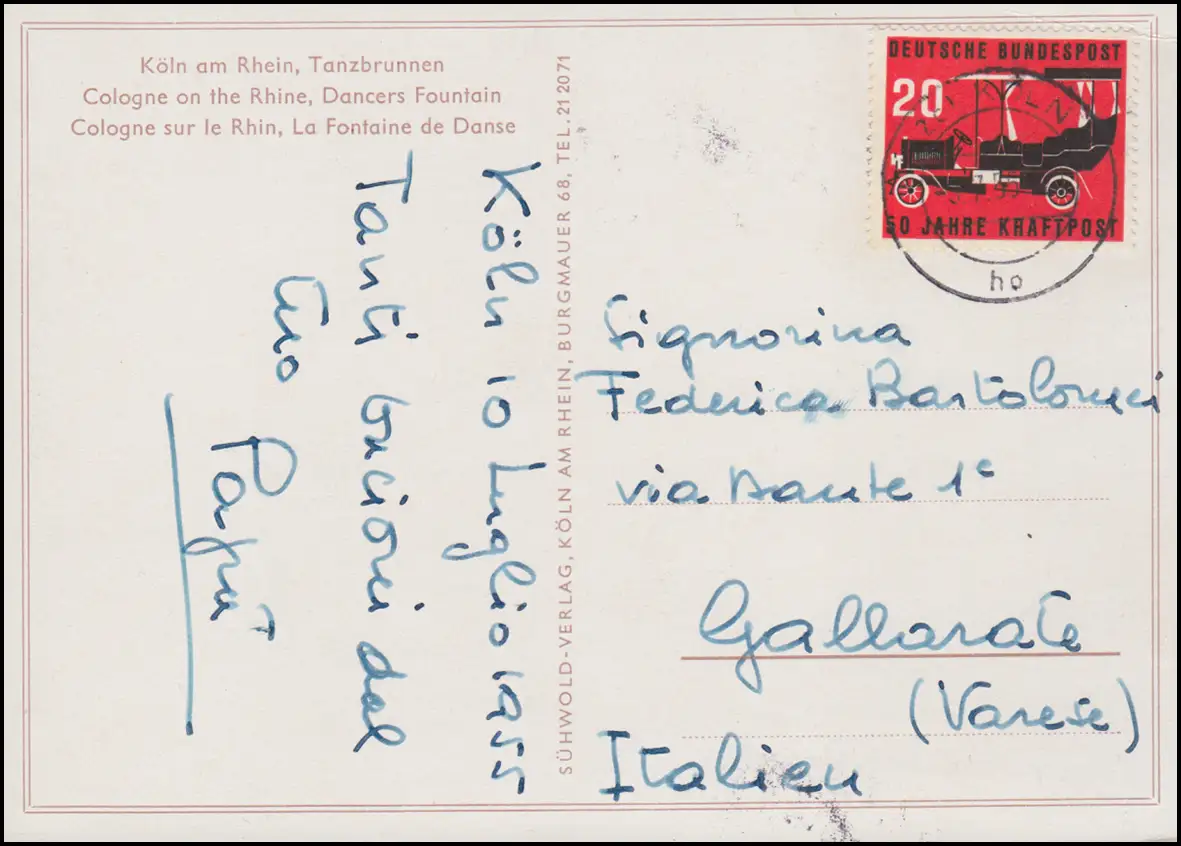 Köln am Rhein, Tanzbrunnen
Cologne on the Rhine, Dancers Fountain
Cologne sur le Rhin, La Fontaine de Danse
Köln 10 Luglio 1955
Tanti bacioni dal
tuo
Papi
SÜHWOLD-VERLAG, KÖLN AM RHEIN, BURGMAUER 68, TEL. 21 20 71
DEUTSCHE BUNDESPOST
20
50 JAHRE KRAFTPOST
KÖLN
ho
Signorina
Federica Bartolomei
via Dante 1c
Gallarate
(Varese)
Italien